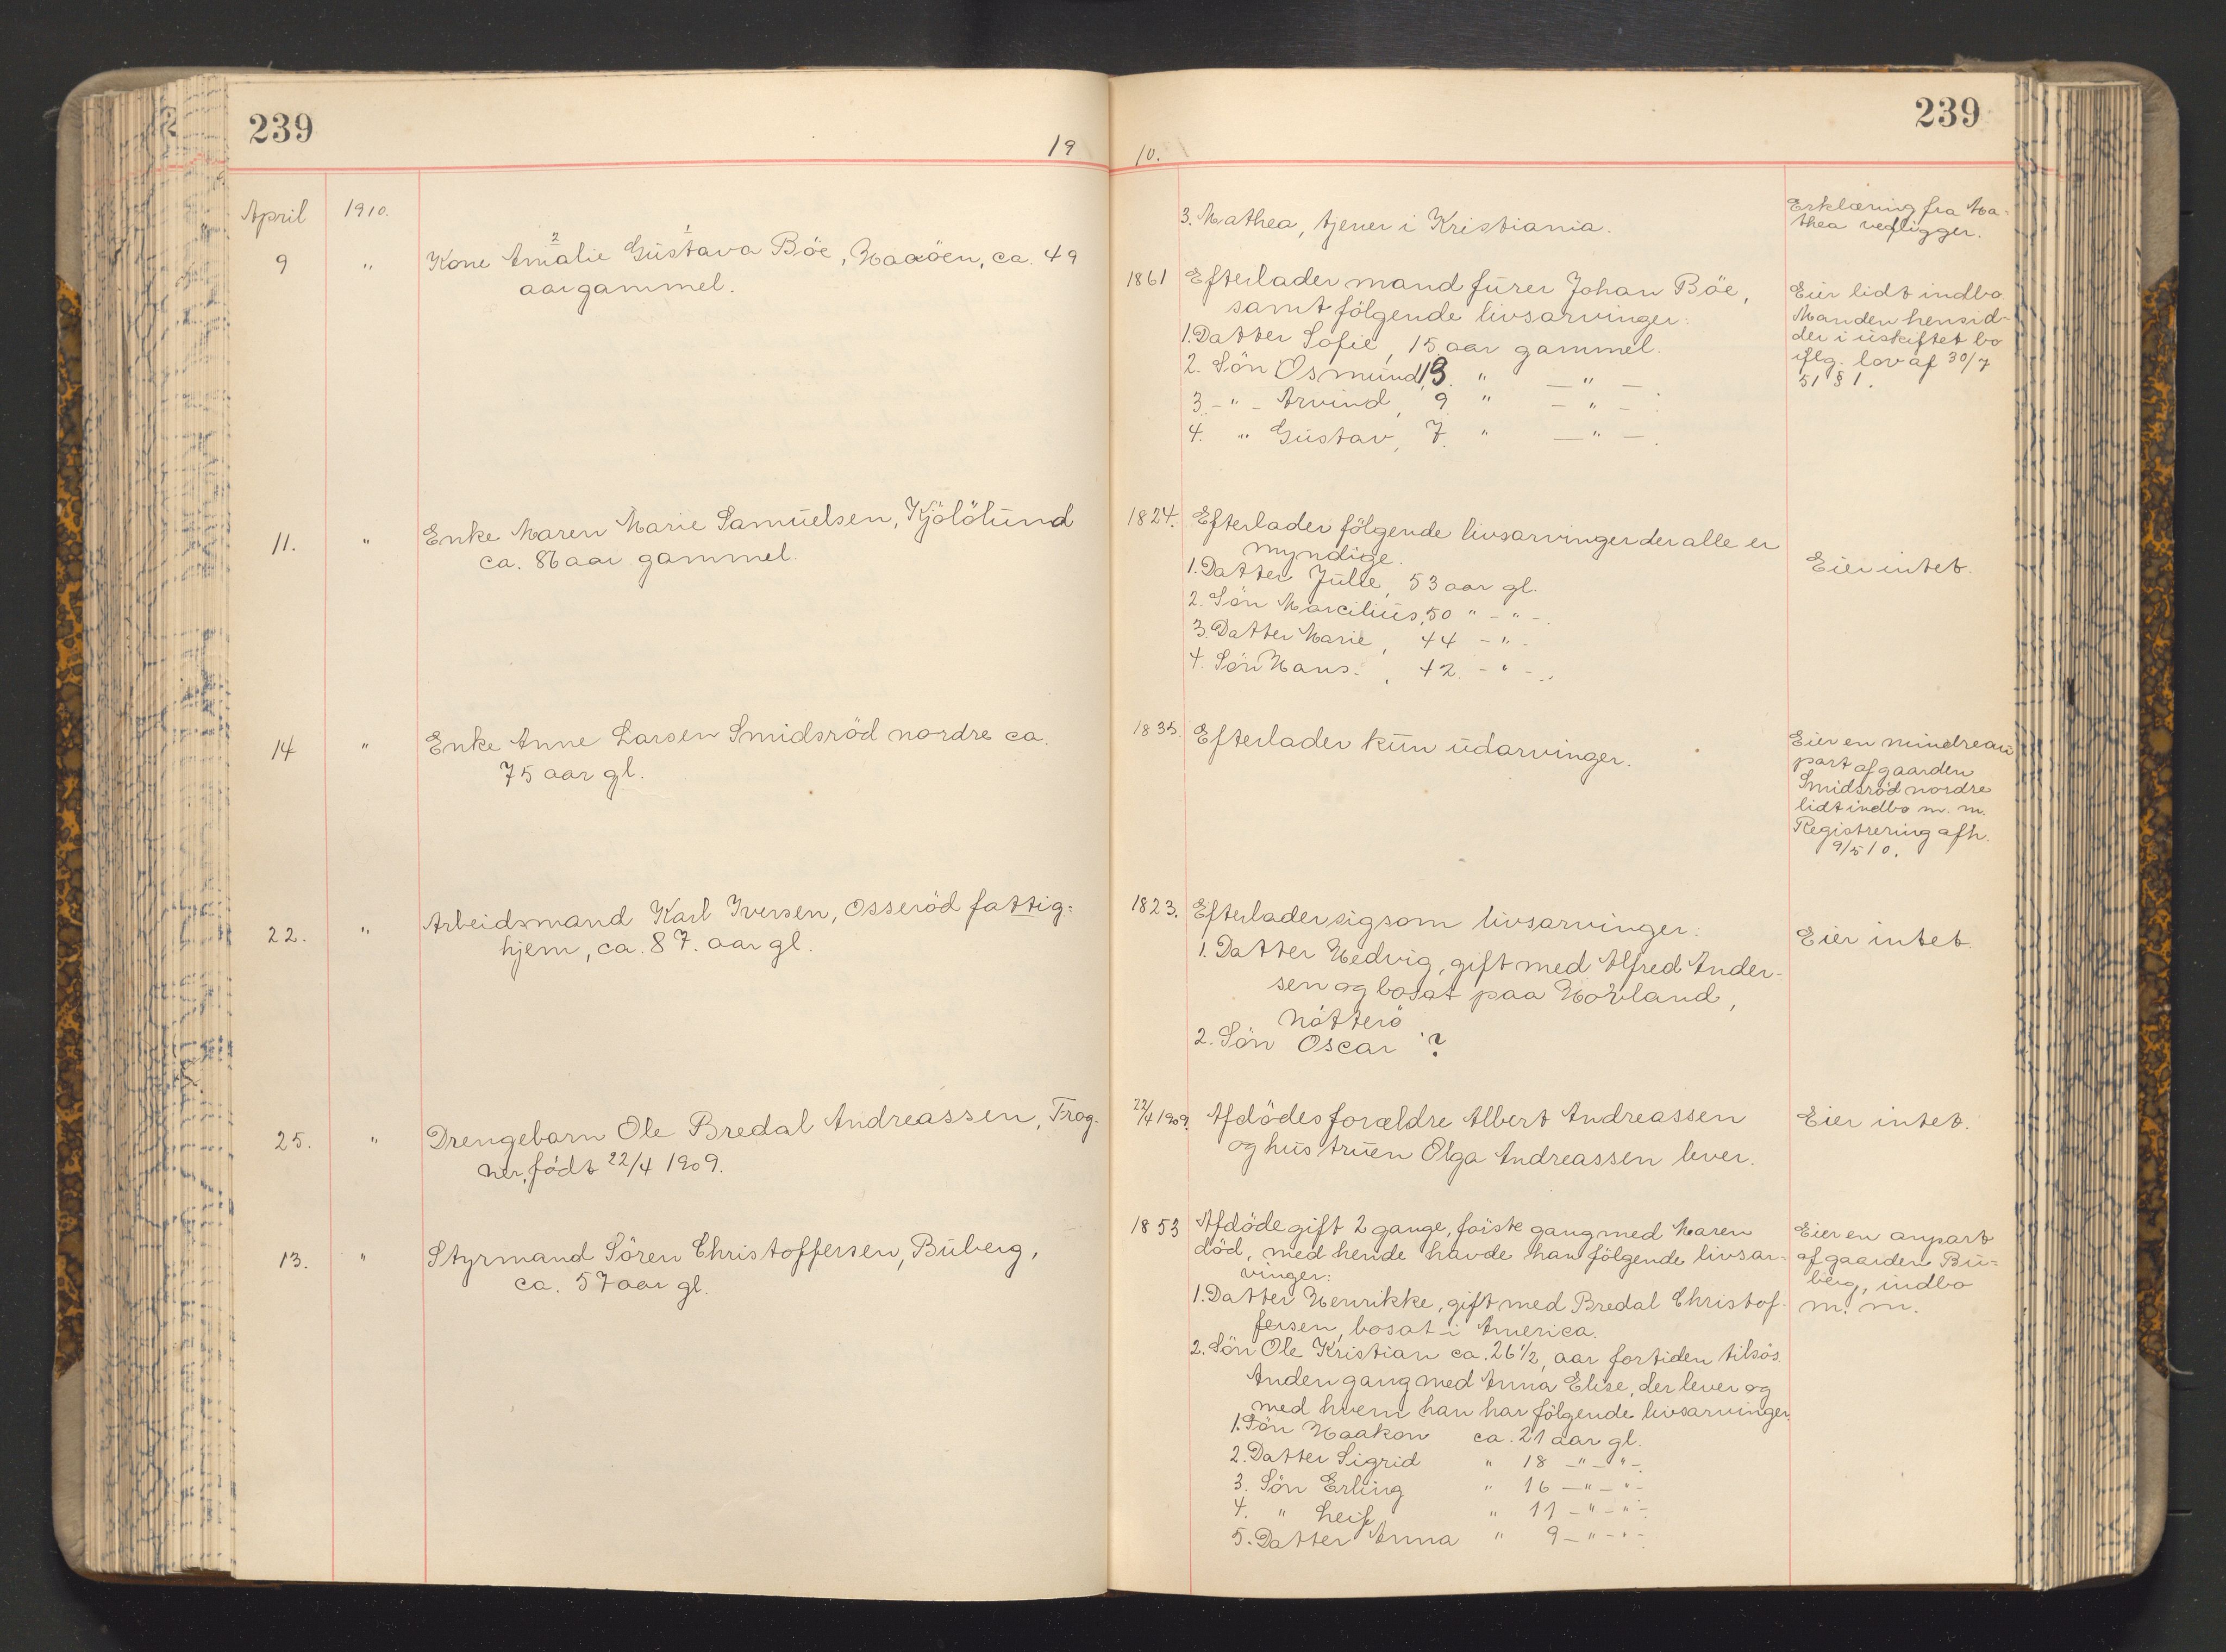 239
239
19
10.
April
1910.
3. Mathea, tjener i Kristiania.
Erklæring fra Ma-
thea vedligger.
9
"
2 1
Kone Amalie Gustava Böe, Haaöen, ca. 49
aar gammel.
1861
Efterlader mand fürer Johan Böe,
samt fölgende livsarvinger:
1. Datter Sofie, 15 aar gammel.
2. Sön Osmund, 13. " — " —
3. - " - Arvind, 9 " — " — .
4. " Gustav, 7. " — " — .
Eier lidt indbo.
Manden hensid-
der i uskiftet bo
iflg. lov af 30/7
51 § 1.
11.
"
Enke Maren Marie Samuelsen, Kjölölund
ca. 86 aar gammel.
1824.
Efterlader fölgende livsarvinger der alle er
myndige.
1. Datter Julie, 53 aar gl.
2. Sön Marcilius, 50 " - " - .
3. Datter Marie, 44 - " -
4. Sön Hans. , 42. - " - .
Eier intet.
14
"
Enke Anne Larsen Smidsröd nordre ca.
75 aar gl.
1835.
Efterlader kun udarvinger.
Eier en mindre an
part af gaarden
Smidsröd nordre
lidt indbo m. m.
Registrering afh.
9/5 10.
22.
"
Arbeidsmand Karl Iversen, Osseröd fattig-
hjem, ca. 87. aar gl.
1823.
Efterlader sig som livsarvinger:
1. Datter Hedvig, gift med Alfred Ander-
sen og bosat paa Hovland,
Nötterö
2. Sön Oscar ?
Eier intet.
25.
"
Drengebarn Ole Bredal Andreassen, Trog-
ner, födt 22/4 1909.
22/4 1909.
Afdödes forældre Albert Andreassen
og hustruen Olga Andreassen lever.
Eier intet.
13.
"
Styrmand Sören Christoffersen, Buberg,
ca. 57 aar gl.
1853
Afdöde gift 2 gange, förste gang med Maren
död, med hende havde han fölgende livsar-
vinger:
1. Datter Henrikke, gift med Bredal Christof-
fersen, bosat i America.
2. Sön Ole Kristian ca. 26 1/2, aar fortiden tilsös.
Anden gang med Anna Elise, der lever og
med hvem han har fölgende livsarvinger.
1. Sön Haakon ca. 21 aar gl.
2. Datter Sigrid " 18 — " — " — .
3. Sön Erling " 16 — " — " —
4. " Leif " 11 — " — " —
5. Datter Anna " 9 — " — " — .
Eier en anpart
af gaarden Bu-
berg, indbo
m. m.